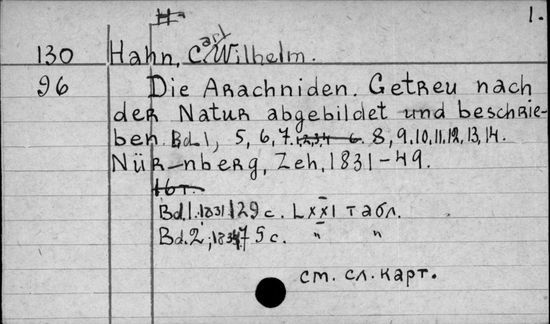 1.
130 Hahn, Carl Wilhelm.
96 Die Arachniden. Getreu nach
der Natur abgebildet und beschrie-
ben. Bd. 1, 5, 6, 7. 1,2,3,4 6. 8, 9, 10, 11, 12, 13, 14.
Nürnberg, Zeh, 1831-49.
16 т.
Bd. 1. 1831 129 с. табл.
Bd. 2; 75 с. " "
см. сл. карт.